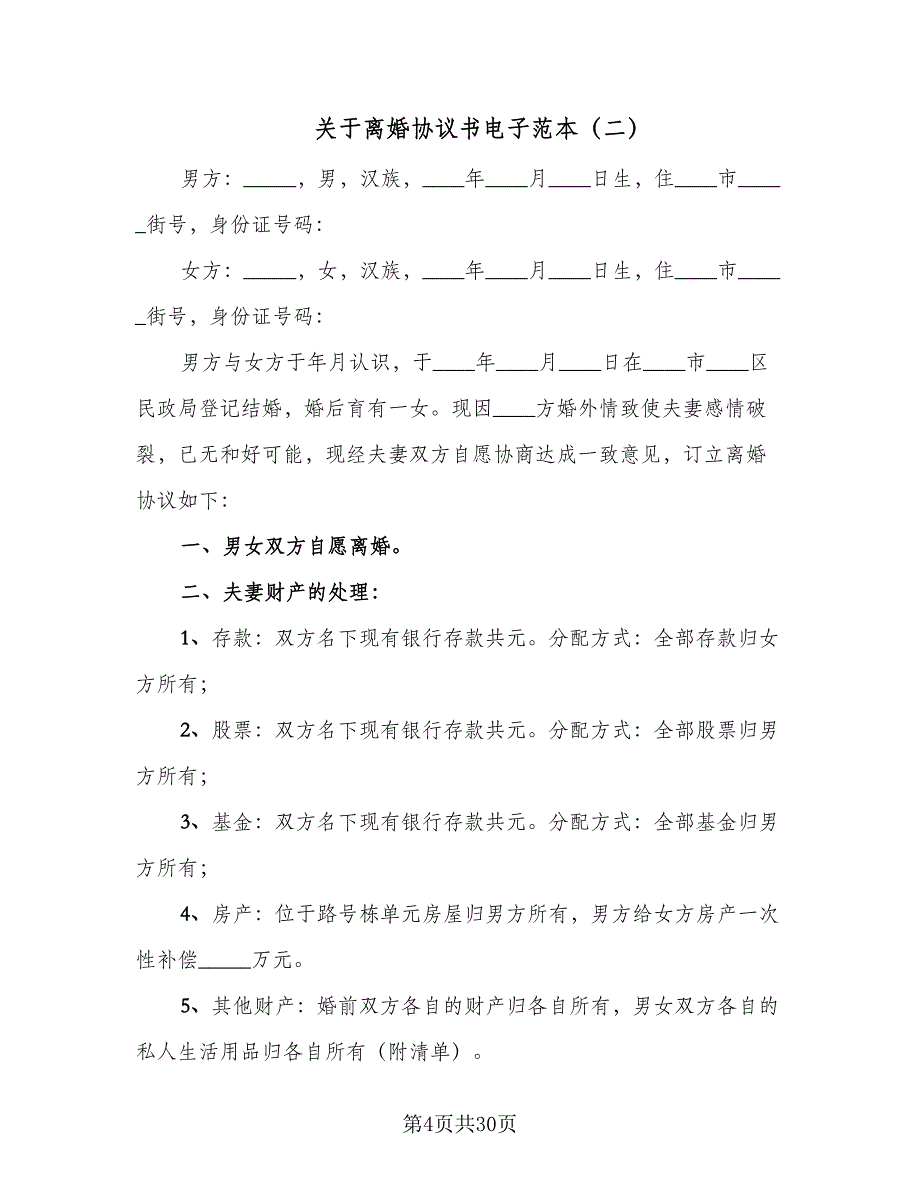 关于离婚协议书电子范本（二）
男方：_____，男，汉族，____年____月____日生，住____市____
_街号，身份证号码：
女方：_____，女，汉族，____年____月____日生，住____市____
_街号，身份证号码：
男方与女方于年月认识，于____年____月____日在____市____区
民政局登记结婚，婚后育有一女。现因____方婚外情致使夫妻感情破
裂，已无和好可能，现经夫妻双方自愿协商达成一致意见，订立离婚
协议如下：
一、男女双方自愿离婚。
二、夫妻财产的处理：
1、存款：双方名下现有银行存款共元。分配方式：全部存款归女
方所有；
2、股票：双方名下现有银行存款共元。分配方式：全部股票归男
方所有；
3、基金：双方名下现有银行存款共元。分配方式：全部基金归男
方所有；
4、房产：位于路号栋单元房屋归男方所有，男方给女方房产一次
性补偿_____万元。
5、其他财产：婚前双方各自的财产归各自所有，男女双方各自的
私人生活用品归各自所有（附清单）。
第4页共30页